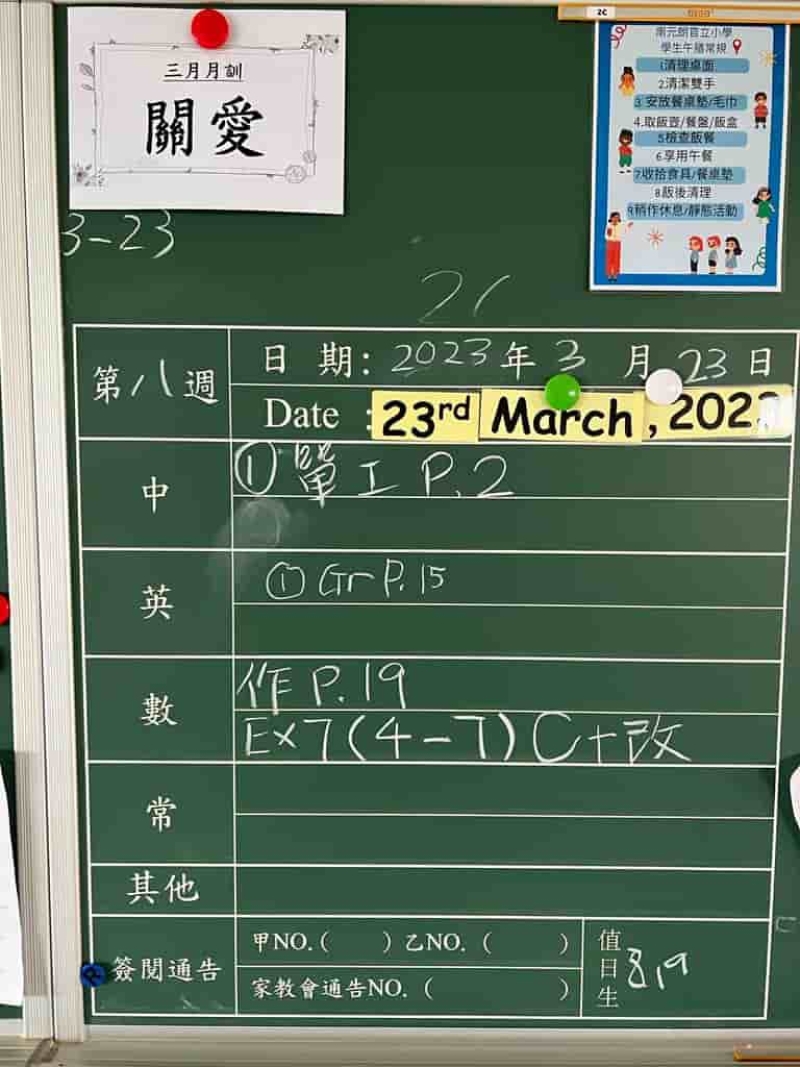 三月月訓
關愛
2C
南元朗官立小學
學生午膳常規
1清理桌面
2.清潔雙手
3.安放餐桌墊/毛巾
4.取飯壺/餐盤/飯盒
5檢查飯餐
6.享用午餐
7收拾食具/餐桌墊
8.飯後清理
9稍作休息/靜態活動
3-23
第八週
日 期: 2023年3月23日
Date : 23rd March, 202
中
① 單工 P.2
英
① Gr P.15
數
作 P.19
Ex7(4-7) C+改
常
其他
簽閱通告
甲NO.( ) 乙NO. ( )
家教會通告NO. ( )
值日生 8,19